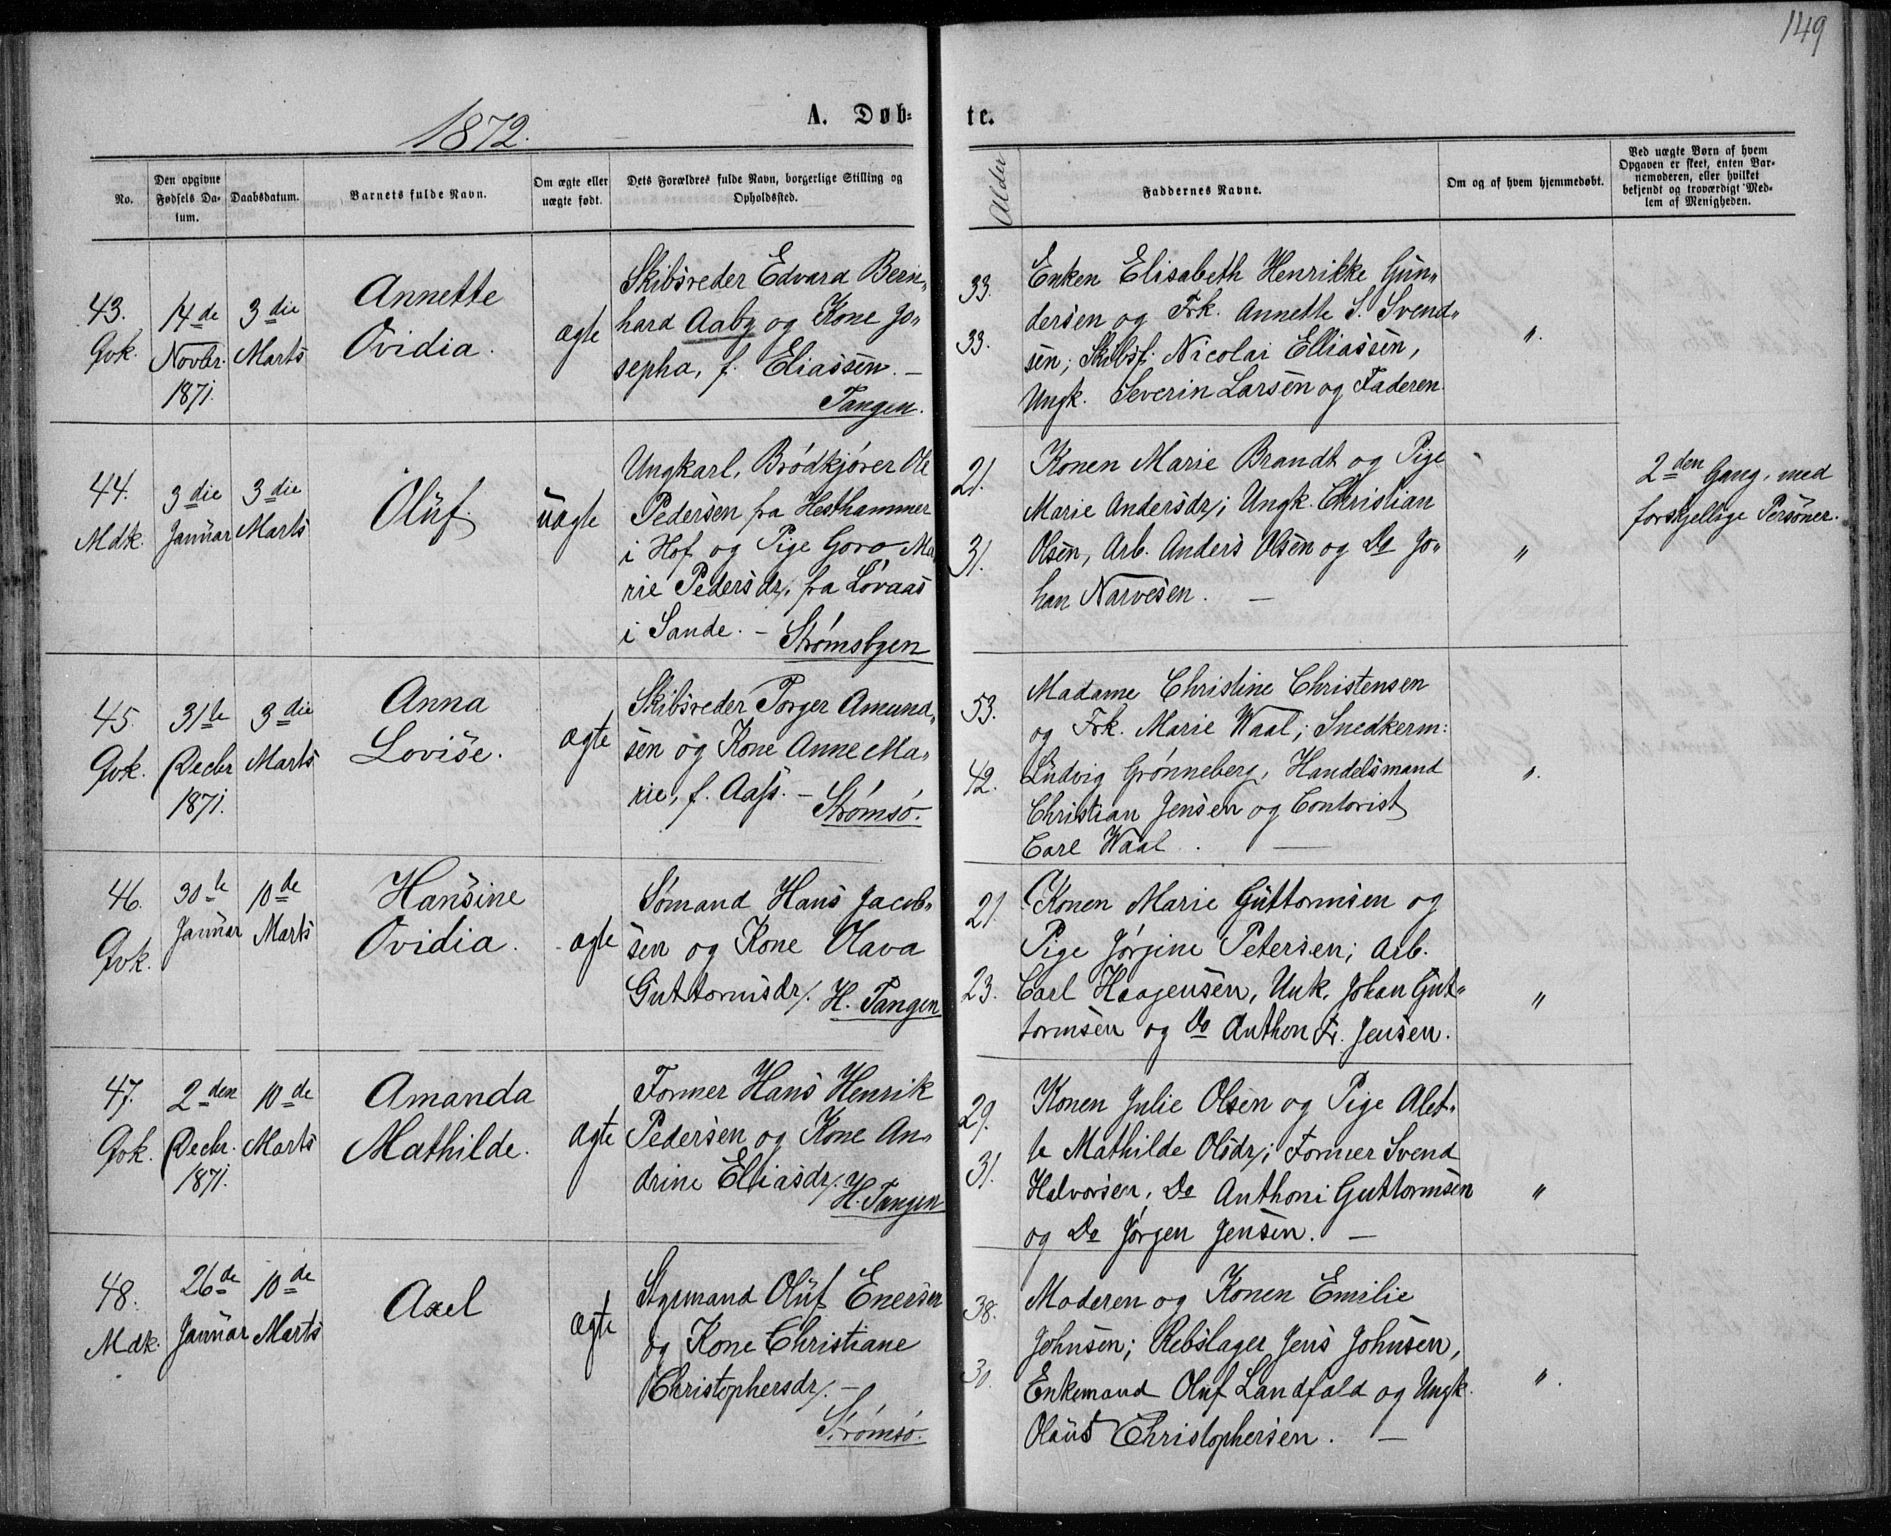 149
1872.
A. Døb-
te.
No.
Den opgivne
Fødsels Da-
tum.
Daabsdatum.
Barnets fulde Navn.
Om ægte eller
uægte født.
Dets Forældres fulde Navn, borgerlige Stilling og
Opholdssted.
Alder
Faddernes Navne.
Om og af hvem hjemmedøbt.
Ved uægte Børn af hvem
Opgaven er skeet, enten Bar-
nemoderen, eller hvilket
bekjendt og troværdigt Med-
lem af Menigheden.
43.
Qvk.
14de
Novbr.
1871.
3die
Marts
Annette
Ovidia.
ægte
Skibsreder Edvard Bern-
hard Aaby og Kone Jo-
sepha, f. Eliassen. —
Tangen.
33.
33.
Enken Elisabeth Henrikke Gun-
dersen og Frk. Annette S. Svend-
sen; Skibsf. Nicolai Elliassen,
Ungk. Severin Larsen og Faderen.
"
44.
Mdk.
3die
Januar
3die
Marts
Oluf.
uægte
Ungkarl, Brødkjører Ole
Pedersen fra Hesthammer
i Hof og Pige Goro Ma-
rie Pedersdr. fra Løvaas
i Sande. — Strømsbgen
21.
31.
Konen Marie Brandt og Pige
Marie Andersdr; Ungk. Christian
Olsen, Arb. Anders Olsen og Do Jo-
han Narvesen. —
"
2den Gang, med
forskjellige Personer.
45.
Qvk.
31te
Decbr
1871.
3die
Marts
Anna
Lovise.
ægte
Skibsreder Torger Amund-
sen og Kone Anne Ma-
rie, f. Aass. — Strømsø.
53.
42.
Madame Christine Christensen
og Frk. Marie Waal; Snedkerm:
Ludvig Grønneberg, Handelsmand
Christian Jensen og Contorist
Carl Waal. —
"
46.
Qvk.
30te
Januar
10de
Marts
Hansine
Ovidia.
ægte
Sømand Hans Jacob-
sen og Kone Olava
Guttormsdr/. H. Tangen
21.
23.
Konen Marie Guttormsen og
Pige Jørgine Petersen; Arb.
Carl Haagensen, Unk. Johan Gut-
tormsen og Do Anthon Fr. Jensen.
"
47.
Qvk.
2den
Decbr.
1871.
10de
Marts
Amanda
Mathilde.
ægte
Former Hans Henrik
Pedersen og Kone An-
drine Elliasdr/.
H. Tangen
29.
31.
Konen Julie Olsen og Pige Alet-
te Mathilde Olsdr; Former Svend
Halvorsen, Do Anthoni Guttormsen
og Do Jørgen Jensen. —
"
48.
Mdk.
26de
Januar
10de
Marts
Axel
ægte
Styrmand Oluf Enersen
og Kone Christiane
Christophersdr/. —
Strømsø.
38.
30.
Moderen og Konen Emilie
Johnsen; Rebslager Jens Johnsen,
Enkemand Oluf Landfald og Ungk.
Olaus Christophersen. —
"